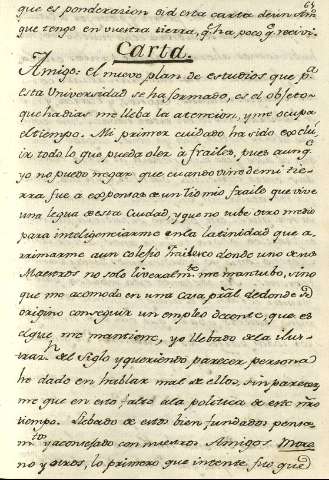 64
que es ponderacion oid esta carta de un Am.
que tengo en vuestra tierra, q.e ha poco q.e recivi.
Carta.
Amigo: el nuevo plan de estudios que p.a
esta Universidad se ha formado, es el objeto
que hadias me lleba la atencion, y me ocupa
el tiempo. Mi primer cuidado ha sido exclu
ir todo lo que pueda oler à frailes, pues aunq.e
yo no puedo negar que cuando vine de mi tie-
rra fue a expensas de un tio mio fraile que vive
una legua de esta Ciudad, y que no tube otro medio
para inteligenciarme en la latinidad que a
rrimarme a un colegio donde uno de los
Maestros no solo liveralm.te me mantubo, sino
que me acomodo en una casa, pral de donde se
origino conseguir un empleo decente, que es
el que me mantiene, yo llebado de la ilus-
trac.n del Siglo y queriendo parecer persona
he dado en hablar mal de ellos, sin parecer
me que en esto falto à la politica de este nro
tiempo. llebado de estos bien fundados pensa
m.tos y aconsejado con nuestros Amigos
no y otros, lo primero que intente fue que